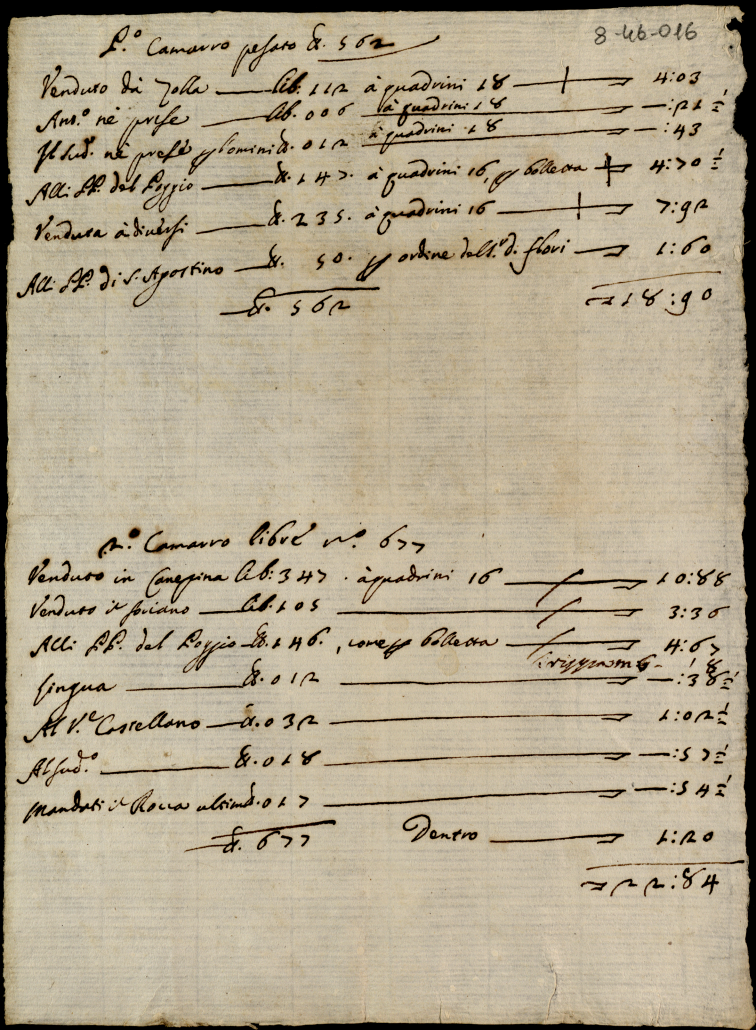 8-46-016
P.º Camarro pesato lb. 562
Venduto da Zolla lib. 112 à quadrini 18 4:03
Ant.º nè prese lib. 006 à quadrini 18 —:21½
Il sud.º nè prese domini lb. 012 à quadrini 18 —:43
Alli PP. del Poggio lb. 147. à quadrini 16, p bolletta 4:70½
Venduta à diversi lb. 235. à quadrini 16 7:92
Alli PP. di S. Agostino lb. 50. p ordine dell. d. flori 1:60
lb. 562 18:90
2.º Camarro libre n.º 677
Venduto in Canepina lib: 347. à quadrini 16 10:88
Venduto i Soriano lib. 105 3:36
Alli P.P. del Poggio lb. 146., come p bolletta 4:67
lingua lb. 012 —:38½
Al V.e Castellano lb. 032 1:02½
Al sud.º lb. 018 —:57½
Mandati i Rocca ultim lb. 017 —:54½
lb. 677 Dentro 1:20
22:84